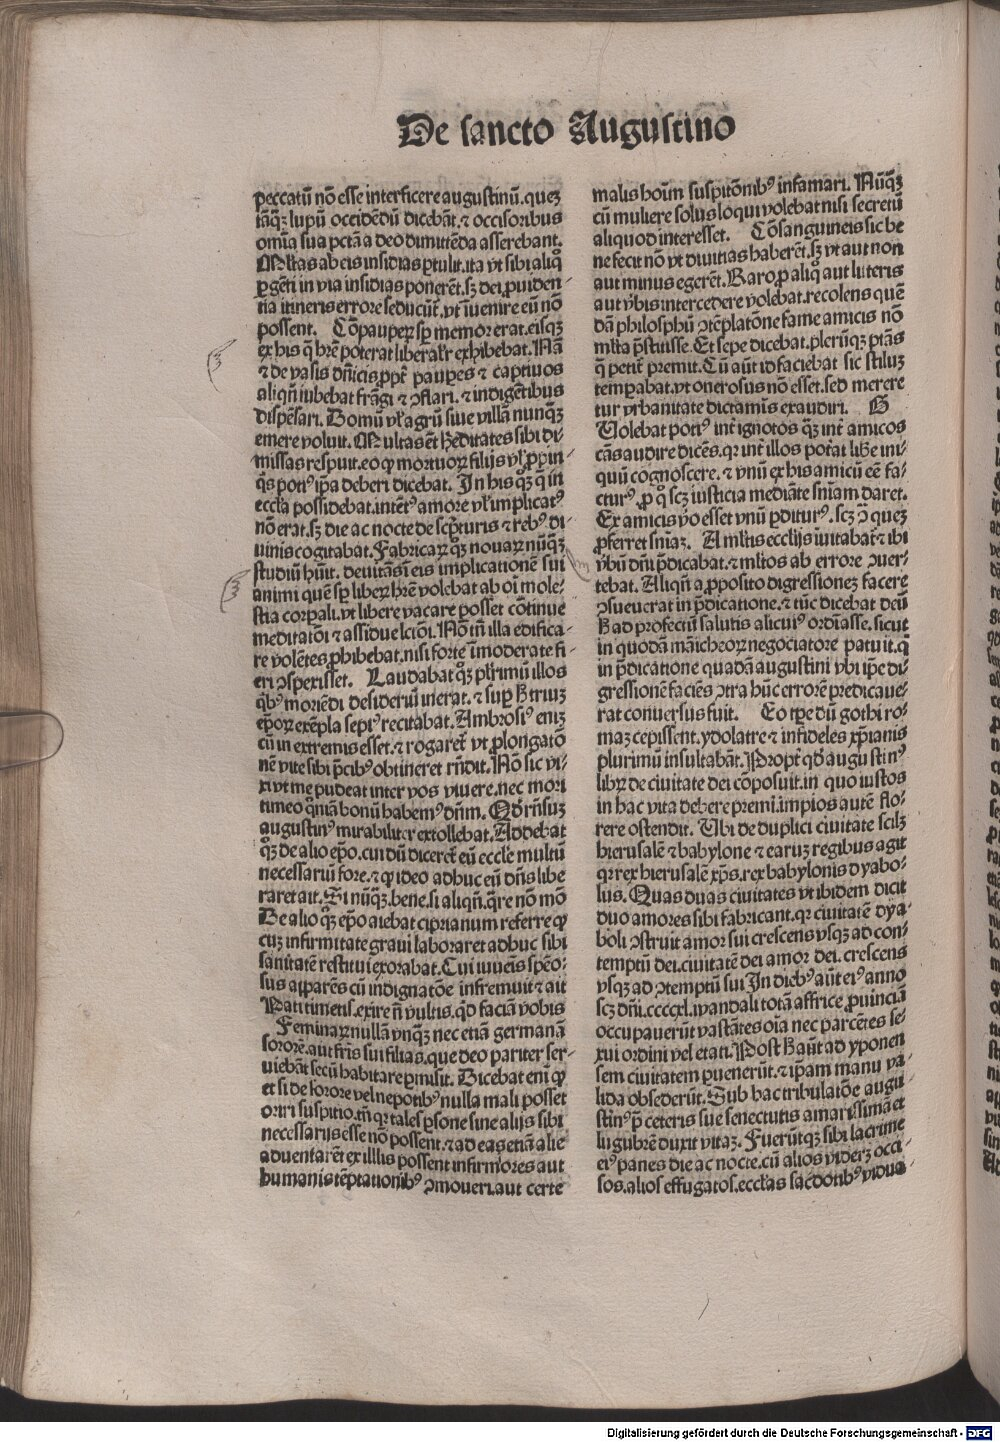 De sancto Augustino
peccatũ nõ esse interficere augustinũ.quez
tãq̃ʒ lupũ occidẽdũ dicebãt.⁊ occisoribus
om̃ia sua pctã a deo dimittẽda asserebant.
Ml̃tas ab eis insidias ꝑtulit.ita vt sibi aliqͦ
ꝑgẽti in via insidias ponerẽt.sʒ dei ꝓuiden⸗
tia itineris errore seducũt̃.vt ĩuenire eũ nõ
possent. Cõpauperꝝ sp̃ memor erat.eisqʒ
ex his q̃ hr̃e poterat liberalr̃ exhibebat. Nã
⁊ de vasis dñicis ꝓpt̃ paupes ⁊ captiuos
aliqñ iubebat frãgi ⁊ ꝯflari.⁊ indigẽtibus
dispẽsari. Domũ vl̃ agrũ siue villã nunq̃ʒ
emere voluit. Multas ẽt hẽditates sibi di⸗
missas respuit.eo ꝙ mortuoꝝ filijs vl̃ ꝓpin⸗
q̃s poti⁹ ip̃a deberi dicebat. In his qͦʒ q̃ in
eccl̃ia possidebat.intẽt⁹ amore vl̃ implicat⁹
nõ erat.sʒ die ac nocte de scp̃turis ⁊ reb⁹ di⸗
uinis cogitabat. Fabricaꝝ qͦʒ nouaꝝ nũq̃ʒ
studiũ hũit. deuitãs ĩ eis implicationẽ sui
animi quẽ sp̃ liberꝝ hr̃e volebat ab oĩ mole⸗
stia corpali.vt libere vacare posset cõtinue
meditatiõi ⁊ assidue lciõi. Nõ tñ illa edifica⸗
re volẽtes ꝓhibebat.nisi forte ĩmoderate fi⸗
eri ꝯspexisset. Laudabat qͦʒ plr̃imũ illos
q̃b⁹ moriẽdi desideriũ inerat.⁊ sup ß triuʒ
ep̃oꝝ exẽpla sepi⁹ recitabat. Ambrosi⁹ eniʒ
cũ in extremis esset.⁊ rogaret̃ vt ꝓlongatõ
nẽ vite sibi p̃cib⁹ obtineret rñdit. Nõ sic vi⸗
xi vt me pudeat inter vos viuere.nec mori
timeo qm̃ bonũ habem⁹ dñm. Qd̃ rñsuʒ
augustin⁹ mirabiliter extollebat. Addebat
qͦʒ de alio ep̃o.cui dũ diceret̃ eũ eccl̃ie multũ
necessariũ fore.⁊ ꝙ ideo adhuc eũ dñs libe
raret ait. Si nũq̃ʒ.bene.si aliqñ.q̃re nõ mõ
De alio qͦʒ ep̃o aiebat ciprianum referre ꝙ
cuʒ infirmitate graui laboraret adhuc sibi
sanitatẽ restitui exorabat. Cui iuuẽis spẽo⸗
sus apparẽs cũ indignatõe infremuit ⁊ ait
Pati timetis.exire ñ vultis.qd̃ faciã vobis
Feminaꝝ nullã vnq̃ʒ nec etiã germanã
sororẽ.aut fr̃is sui filias.que deo pariter ser⸗
uiebãt secũ habitare ꝑmisit. Dicebat eni ꝙ
et si de sorore vel nepotib⁹ nulla mali posset
oriri suspitio.tñ qꝛ tales ꝑsone sine alijs sibi
necessarijs esse nõ possent.⁊ ad eas etiã alie
aduentarẽt ex illis possent infirmiores aut
humanis tẽptationib⁹ ꝯmoueri.aut certe
malis hoĩm suspitõnib⁹ infamari. Nũq̃ʒ
cũ muliere solus loqui volebat nisi secretũ
aliquod interesset. Cõsanguineis sic be
ne fecit nõ vt diuitias haberẽt.sʒ vt aut non
aut minus egerẽt. Raro ꝓ aliqͦ aut literis
aut v̾bis intercedere volebat.recolens quẽ
dã philosophũ ꝯtẽplatõne fame amicis nõ
ml̃ta p̃stitisse. Et sepe dicebat.pleruqʒ ptãs
q̃ petit̃ premit. Cũ aũt id faciebat sic stiluʒ
temꝑabat.vt onerosus nõ esset.sed merere
tur vrbanitate dictaminis exaudiri. G
Uolebat poti⁹ int̃ ignotos q̃ʒ int̃ amicos
cãs audire dicẽs.qꝛ int̃ illos potat libe ini⸗
quũ cognoscere.⁊ vnũ ex his amicũ eẽ fa⸗
ctur⁹.ꝓ qͦ scʒ iusticia mediãte sniam daret.
Ex amicis v̾o esset vnũ ꝑditur⁹.scʒ ꝯ̃ quez
ꝓferret sniaʒ. A ml̃tis eccl̃ijs iuitabat̃ ⁊ ibi
v̾bũ dñi p̃dicabat.⁊ ml̃tos ab errore ꝯuer⸗
tebat. Aliqñ a ꝓposito digressionez facere
ꝯsueuerat in p̃dicatione.⁊ tũc dicebat deũ
ß ad profectũ salutis alicui⁹ ordĩasse.sicut
in quodã mãicheoꝝ negociatore patuit.q̃
in p̃dicatione quadã augustini vbi ip̃e di⸗
gressionẽ faciẽs ꝯtra hũc errorẽ predicaue⸗
rat conuersus fuit. Eo tp̃e dũ gothi ro⸗
maʒ cepissent.ydolatre ⁊ infideles xp̃ianis
plurimũ insultabãt. Propt̃ qd̃ augustin⁹
libꝝ de ciuitate dei cõposuit.in quo iustos
in hac vita debere premi.impios autẽ flo⸗
rere ostendit. Ubi de duplici ciuitate scilʒ
hierusalẽ ⁊ babylone ⁊ earuʒ regibus agit
qꝛ rex hierusalẽ xp̃s.rex babylonis dyabo⸗
lus. Quas duas ciuitates vt ibidem dicit
duo amores sibi fabricant.qꝛ ciuitatẽ dya⸗
boli ꝯstruit amor sui crescens vsqʒ ad con⸗
temptũ dei.ciuitatẽ dei amor dei.crescens
vsqʒ ad ꝯtemptũ sui In dieb⁹ aũt ei⁹ anno
scʒ dñi.ccccxl.wandali totã affrice ꝓuinciã
occupauerũt vastãtes oĩa nec parcẽtes se⸗
xui ordini vel etati. Post ß aũt ad yponen
sem ciuitatem ꝑuenerũt.⁊ ip̃am manu va⸗
lida obsederũt. Sub hac tribulatõe augu⸗
stin⁹ p̃ ceteris sue senectutis amarissimã et
lugubrẽ duxit vitaʒ. Fuerũtqʒ sibi lacrime
ei⁹ panes die ac nocte.cũ alios viderʒ occi⸗
sos.alios effugatos.eccl̃ias sacdotib⁹ vidua⸗
Digitalisierung gefördert durch die Deutsche Forschungsgemeinschaft - DFG